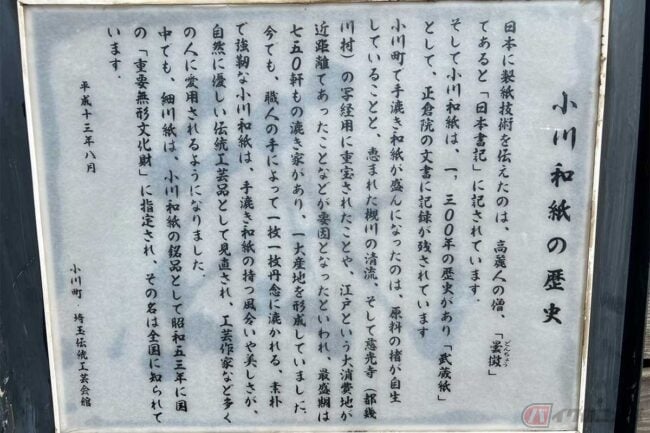 小川和紙の歴史
日本に製紙技術を伝えたのは、高麗人の僧、「曇徴」
どんちょう
であると「日本書記」に記されています。
そして小川和紙は、一、三〇〇年の歴史があり「武蔵紙」
として、正倉院の文書に記録が残されています
小川町で手漉き和紙が盛んになったのは、原料の楮が自生
していることと、恵まれた槻川の清流、そして慈光寺（都幾
川村）の写経用に重宝されたことや、江戸という大消費地が
近距離であったことなどが要因となったといわれ、最盛期は
七五〇軒もの漉き家があり、一大産地を形成していました。
今ても、職人の手によって一枚一枚丹念に漉かれる、素朴
で強靭な小川和紙は、手漉き和紙の持つ風合いや美しさが、
自然に優しい伝統工芸品として見直され、工芸作家など多く
の人に愛用されるようになりました。
中でも、細川紙は、小川和紙の銘品として昭和五三年に国
の「重要無形文化財」に指定され、その名は全国に知られて
います。
平成十三年八月
小川町・埼玉伝統工芸会館